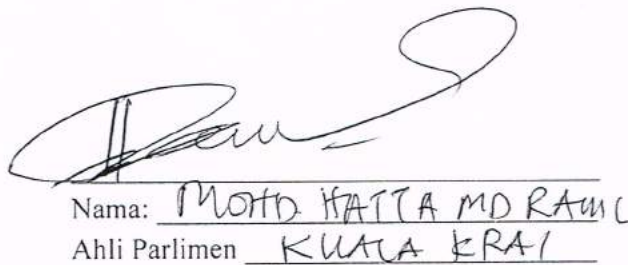 Nama: MOHD HATTA MD RAMLI
Ahli Parlimen KUALA KRAI